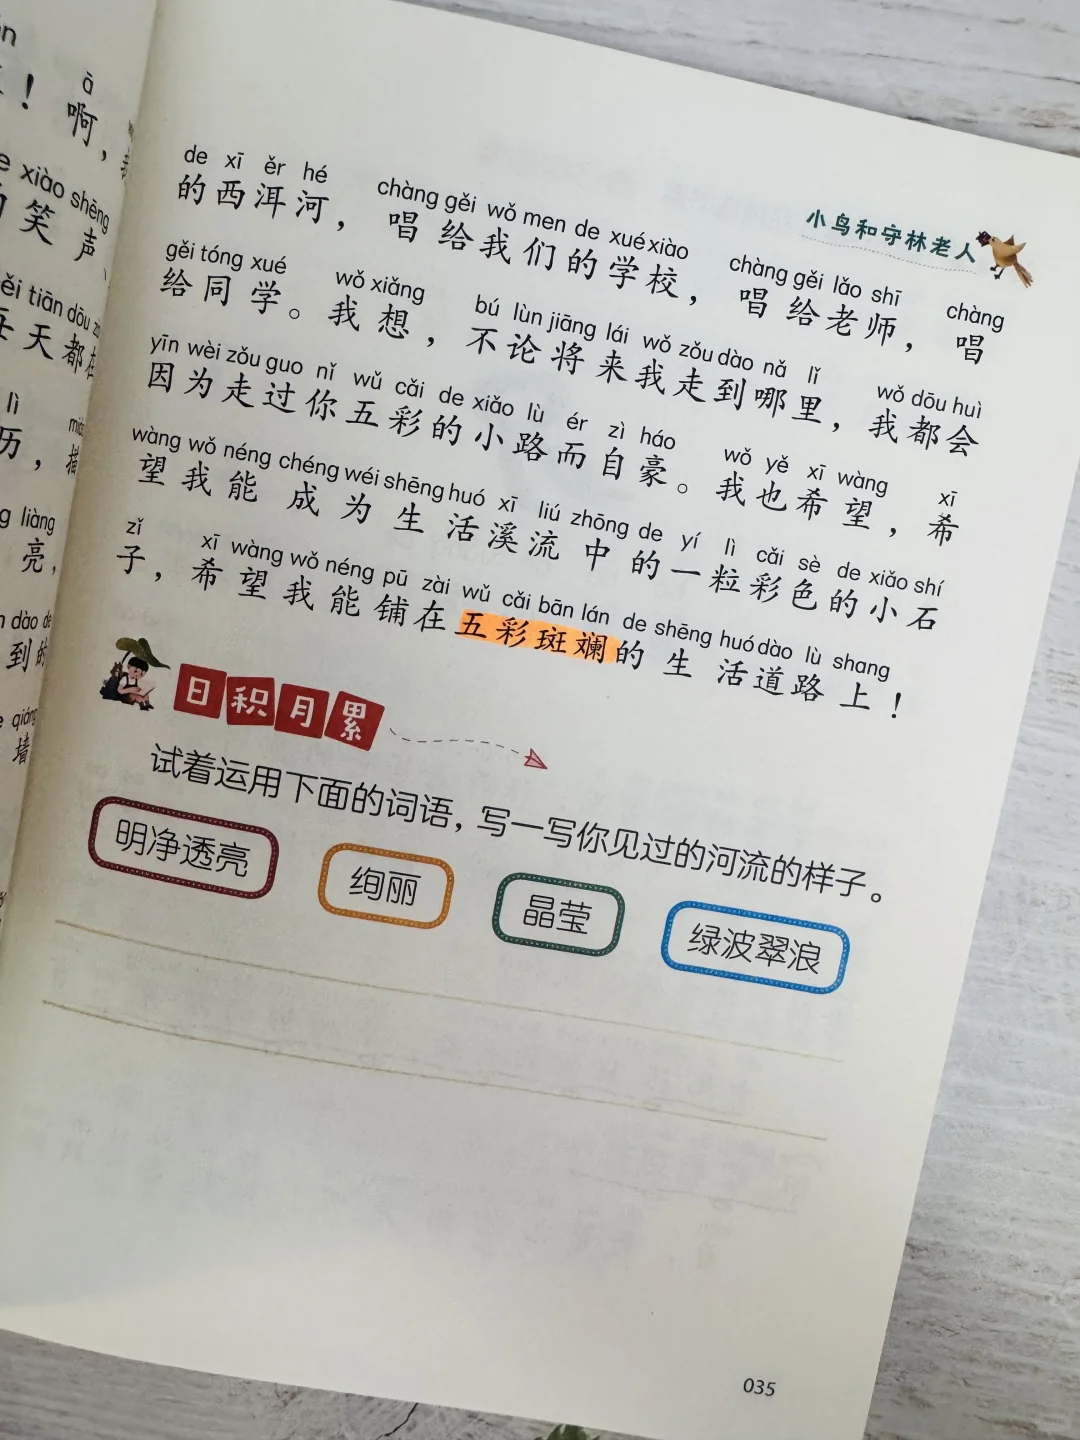 ā
！啊，
xiào shēng
笑声、
tiān dōu
天都在
lì
历，
liàng
亮，
dào de
到的
qiáng
墙
小鸟和守林老人
de xī ěr hé chàng gěi wǒ men de xué xiào chàng gěi lǎo shī chàng
的西洱河，唱给我们的学校，唱给老师，唱
gěi tóng xué wǒ xiǎng bú lùn jiāng lái wǒ zǒu dào nǎ lǐ wǒ dōu huì
给同学。我想，不论将来我走到哪里，我都会
yīn wèi zǒu guo nǐ wǔ cǎi de xiǎo lù ér zì háo wǒ yě xī wàng xī
因为走过你五彩的小路而自豪。我也希望，希
wàng wǒ néng chéng wéi shēng huó xī liú zhōng de yí lì cǎi sè de xiǎo shí
望我能成为生活溪流中的一粒彩色的小石
zǐ xī wàng wǒ néng pū zài wǔ cǎi bān lán de shēng huó dào lù shang
子，希望我能铺在五彩斑斓的生活道路上！
日积月累
试着运用下面的词语，写一写你见过的河流的样子。
明净透亮 绚丽 晶莹 绿波翠浪
035